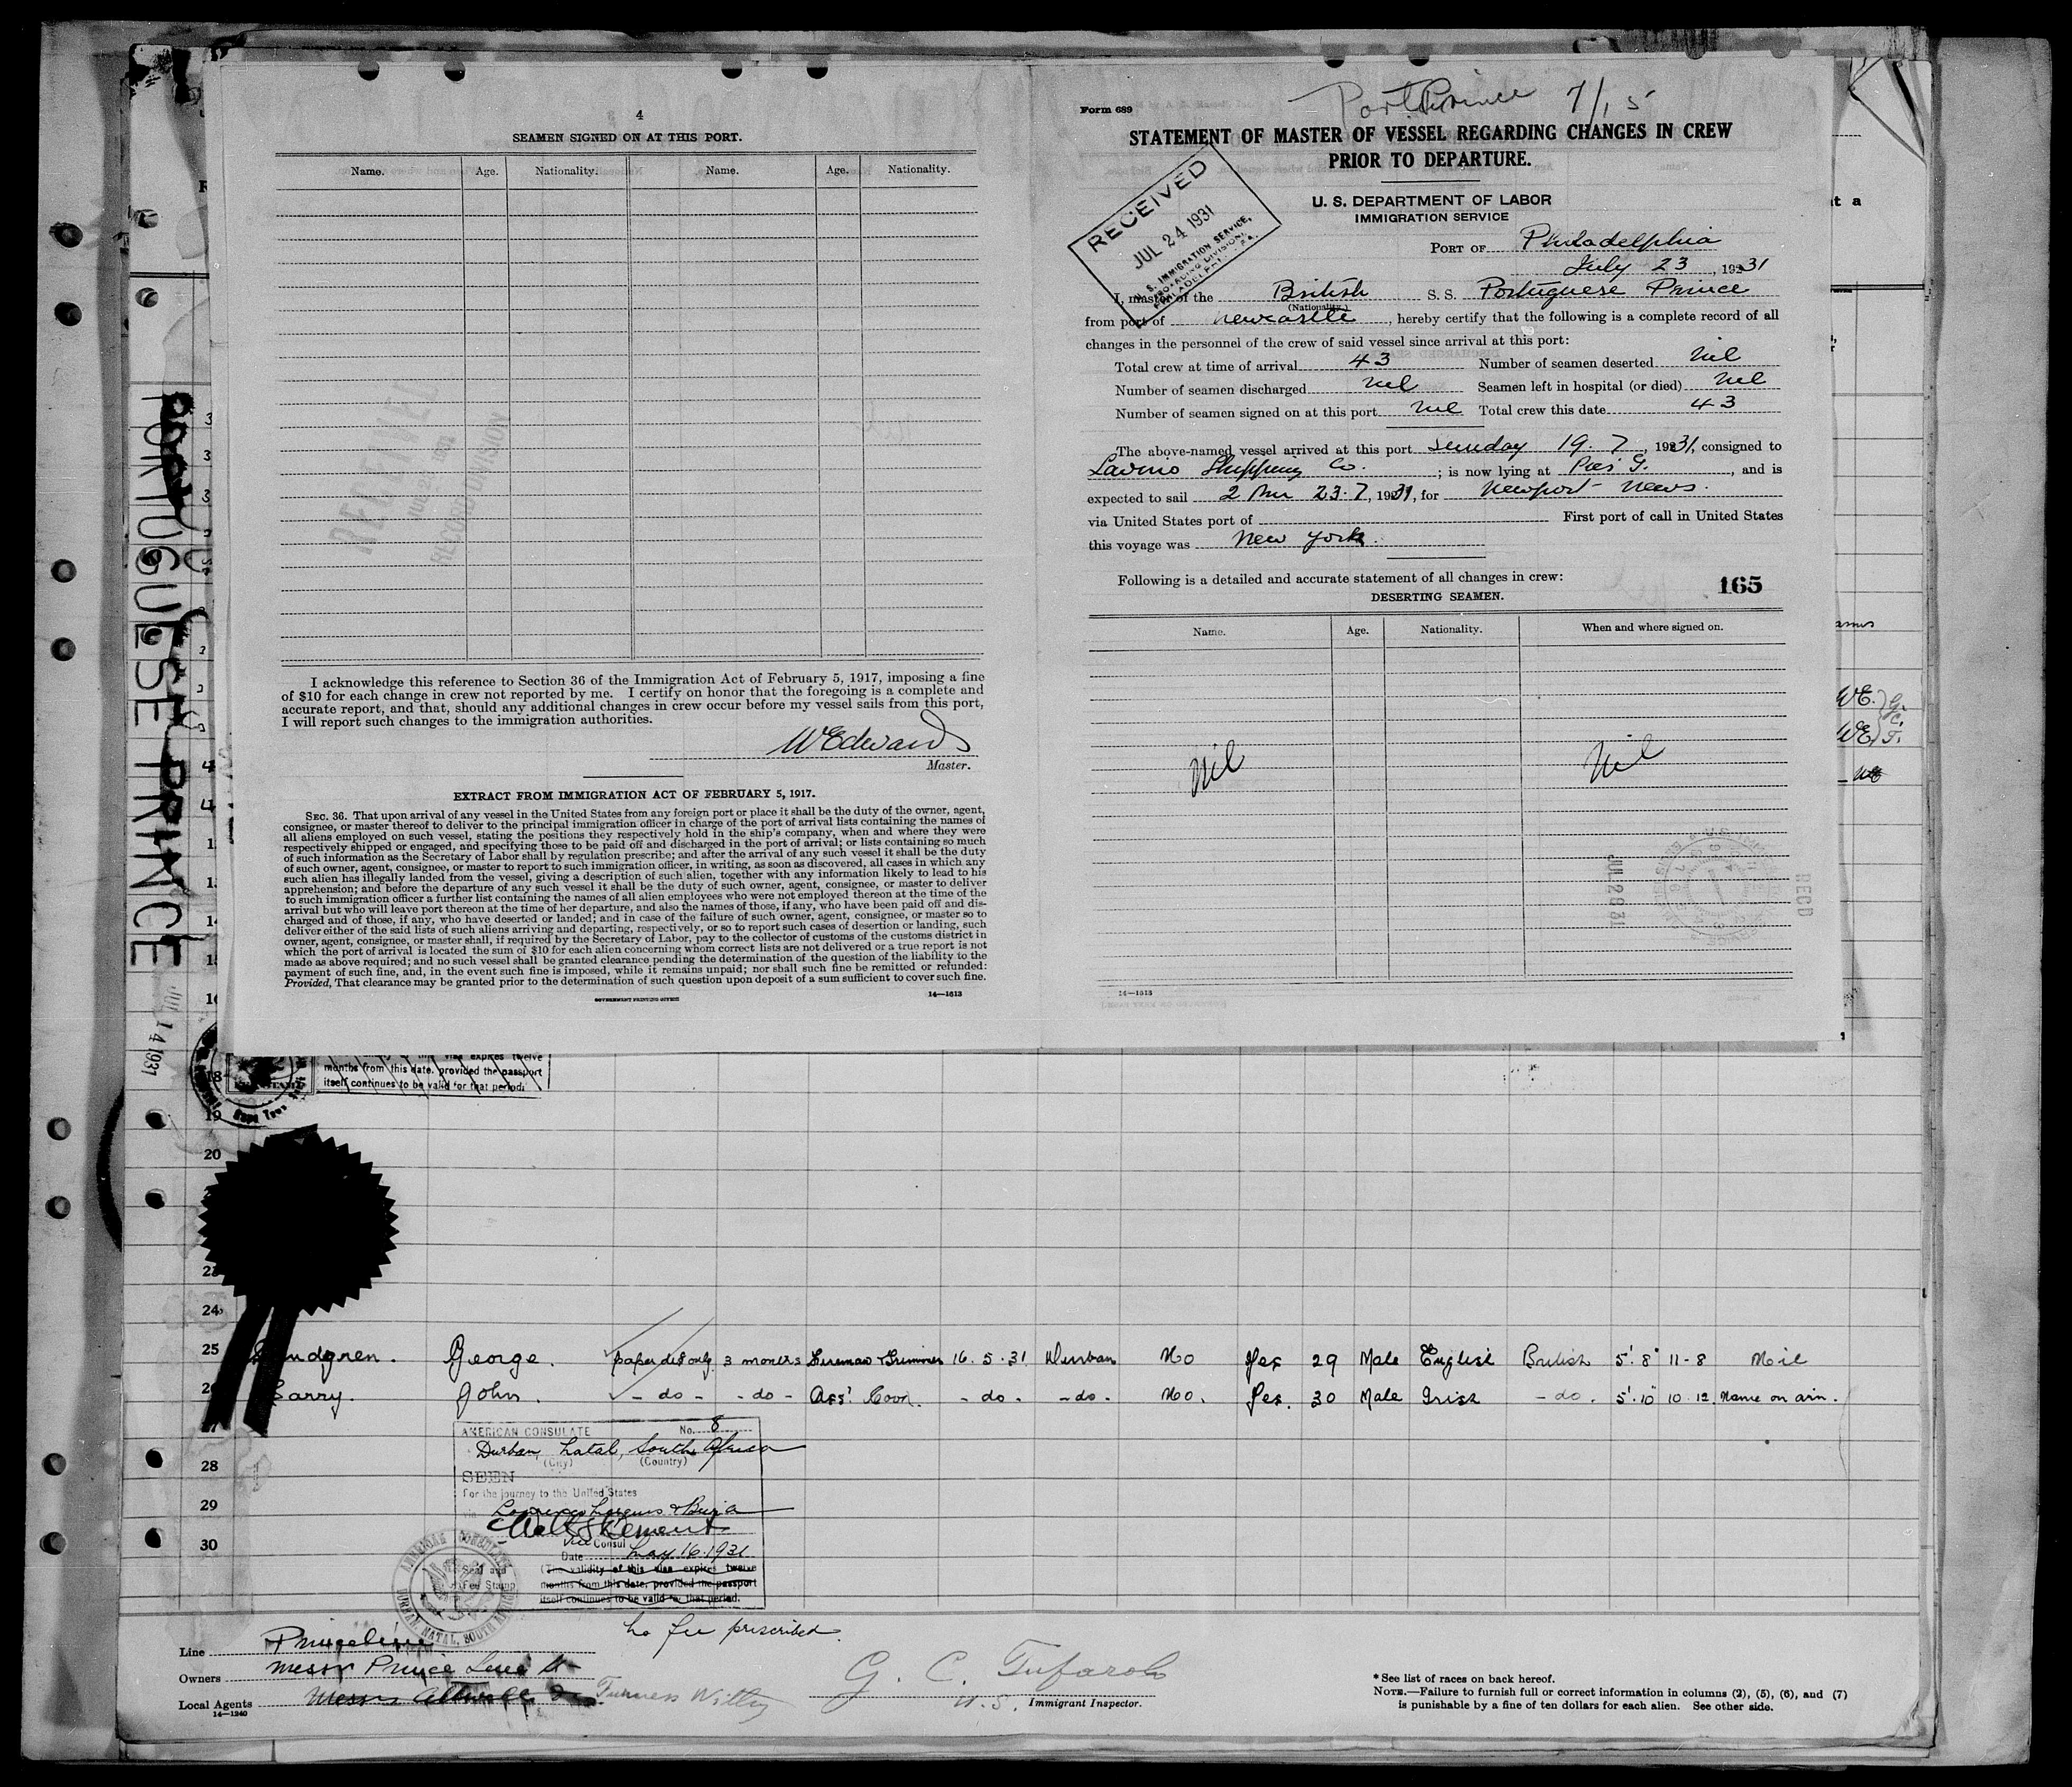 4
SEAMEN SIGNED ON AT THIS PORT.
Name. Age. Nationality. Name. Age. Nationality.
I acknowledge this reference to Section 36 of the Immigration Act of February 5, 1917, imposing a fine
of $10 for each change in crew not reported by me. I certify on honor that the foregoing is a complete and
accurate report, and that, should any additional changes in crew occur before my vessel sails from this port,
I will report such changes to the immigration authorities.
WEdwards
Master.
EXTRACT FROM IMMIGRATION ACT OF FEBRUARY 5, 1917.
SEC. 36. That upon arrival of any vessel in the United States from any foreign port or place it shall be the duty of the owner, agent,
consignee, or master thereof to deliver to the principal immigration officer in charge of the port of arrival lists containing the names of
all aliens employed on such vessel, stating the positions they respectively hold in the ship's company, when and where they were
respectively shipped or engaged, and specifying those to be paid off and discharged in the port of arrival; or lists containing so much
of such information as the Secretary of Labor shall by regulation prescribe; and after the arrival of any such vessel it shall be the duty
of such owner, agent, consignee, or master to report to such immigration officer, in writing, as soon as discovered, all cases in which any
such alien has illegally landed from the vessel, giving a description of such alien, together with any information likely to lead to his
apprehension; and before the departure of any such vessel it shall be the duty of such owner, agent, consignee, or master to deliver
to such immigration officer a further list containing the names of all alien employees who were not employed thereon at the time of the
arrival but who will leave port thereon at the time of her departure, and also the names of those, if any, who have been paid off and dis-
charged and of those, if any, who have deserted or landed; and in case of the failure of such owner, agent, consignee, or master so to
deliver either of the said lists of such aliens arriving and departing, respectively, or so to report such cases of desertion or landing, such
owner, agent, consignee, or master shall, if required by the Secretary of Labor, pay to the collector of customs of the customs district in
which the port of arrival is located the sum of $10 for each alien concerning whom correct lists are not delivered or a true report is not
made as above required; and no such vessel shall be granted clearance pending the determination of the question of the liability to the
payment of such fine, and, in the event such fine is imposed, while it remains unpaid; nor shall such fine be remitted or refunded:
Provided, That clearance may be granted prior to the determination of such question upon deposit of a sum sufficient to cover such fine.
GOVERNMENT PRINTING OFFICE 14—1613
Form 689
Port Prince 7/15
STATEMENT OF MASTER OF VESSEL REGARDING CHANGES IN CREW
PRIOR TO DEPARTURE.
U. S. DEPARTMENT OF LABOR
IMMIGRATION SERVICE
RECEIVED
JUL 24 1931
U. S. IMMIGRATION SERVICE,
PHILADELPHIA, PA.
PORT OF Philadelphia
July 23, 1931
I, master of the British S. S. Portuguese Prince
(Nationality)
from port of Newcastle, hereby certify that the following is a complete record of all
changes in the personnel of the crew of said vessel since arrival at this port:
Total crew at time of arrival 43 Number of seamen deserted Nil
Number of seamen discharged Nil Seamen left in hospital (or died) Nil
Number of seamen signed on at this port Nil Total crew this date 43
The above-named vessel arrived at this port Sunday 19. 7, 1931, consigned to
Lavino Shipping Co. ; is now lying at Pier G. , and is
expected to sail 2 PM 23.7, 1931, for Newport News.
via United States port of First port of call in United States
this voyage was New York.
Following is a detailed and accurate statement of all changes in crew: 165
DESERTING SEAMEN.
Name. Age. Nationality. When and where signed on.
Nil Nil
JUL 29 31
RECD
14—1613
PORTUGUESE PRINCE
JUL 14 1931
months from this date, provided the passport
itself continues to be valid for that period.
18
19
20
24
25 George. 3 months Fireman & Trimmer 16. 5. 31 Durban No Yes 29 Male English British 5'. 8" 11-8 Nil
John. - do - - do - Asst Cook. - do - - do - No. Yes. 30 Male Irish - do . 5'. 10" 10. 12. Name on arm.
28
29
30
AMERICAN CONSULATE No. 8
Durban, Natal, South Africa
(City) (Country)
SEEN
For the journey to the United States
Lourenco Marques & Beira
Vice Consul
Date May 16. 1931
(The validity of this visa expires twelve
months from this date, provided the passport
itself continues to be valid for that period.
Seal and
Fee Stamp
No fee prescribed.
Line Prince Line
Owners Messrs Prince Line Ld
Local Agents Messrs Furness Withy
14—1240
G. C. Tufarolo
U.S. Immigrant Inspector.
* See list of races on back hereof.
NOTE.—Failure to furnish full or correct information in columns (2), (5), (6), and (7)
is punishable by a fine of ten dollars for each alien. See other side.